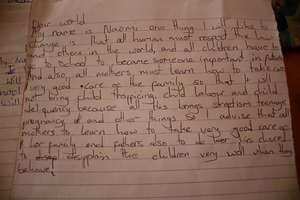 Dear world
My name is Naomi one thing I will like to
change is that all human must respect the law
and others in the world, and all children have to
go to School to became someone important in future
And also, all mothers must learn how to take care
very good care of the family so that it will
not bring child trafficking, child labour and child
deliquency because all this brings streetism teenage
pregnancy and other things So I advise that all
mothers to learn how to take very good care of
their family and fathers also to
to dissplain the children very well when they
behave